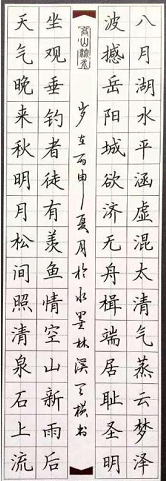 八月湖水平涵虚混太清气蒸云梦泽
波撼岳阳城欲济无舟楫端居耻圣明
岁在丙申夏月於水墨林溪书
坐观垂钓者徒有羡鱼情空山新雨后
天气晚来秋明月松间照清泉石上流